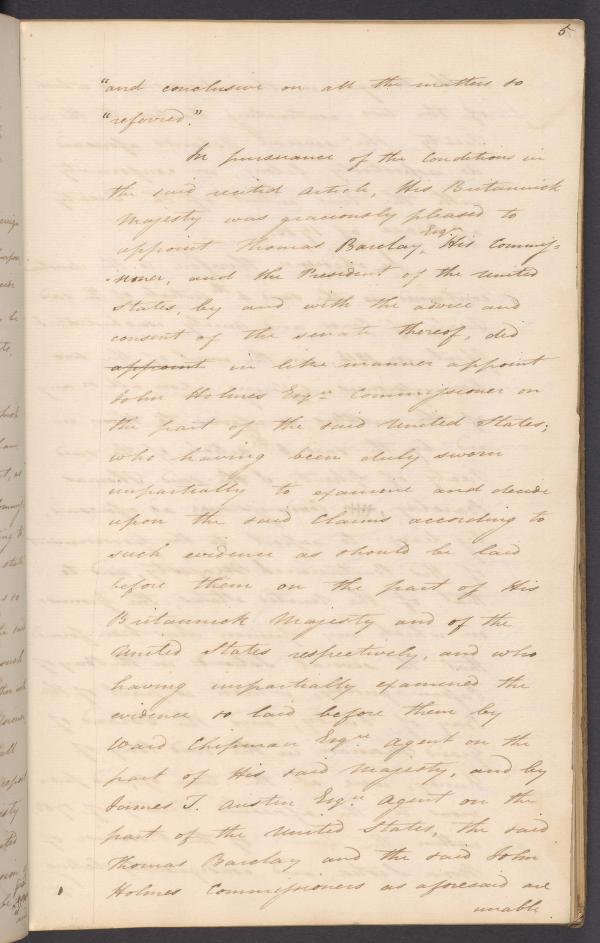 5
"and conclusive on all the matters so
"referred."
In pursuance of the Conditions in
the said recited Article, His Britannick
Majesty was graciously pleased to
appoint Thomas Barclay, Esqr. His Commis-
sioner, and the President of the United
States, by and with the advice and
consent of the senate thereof, did
appoint in like manner appoint
John Holmes Esqr. Commissioner on
the part of the said United States;
who having been duly sworn
impartially to examine and decide
upon the said Claims according to
such evidence as should be laid
before them on the part of His
Britannick Majesty and of the
United States respectively, and who
having impartially examined the
evidence so laid before them by
Ward Chipman Esqr. Agent on the
part of His said Majesty, and by
James T. Austin Esqr. Agent on the
part of the United States, the said
Thomas Barclay and the said John
Holmes Commissioners as aforesaid are
unable